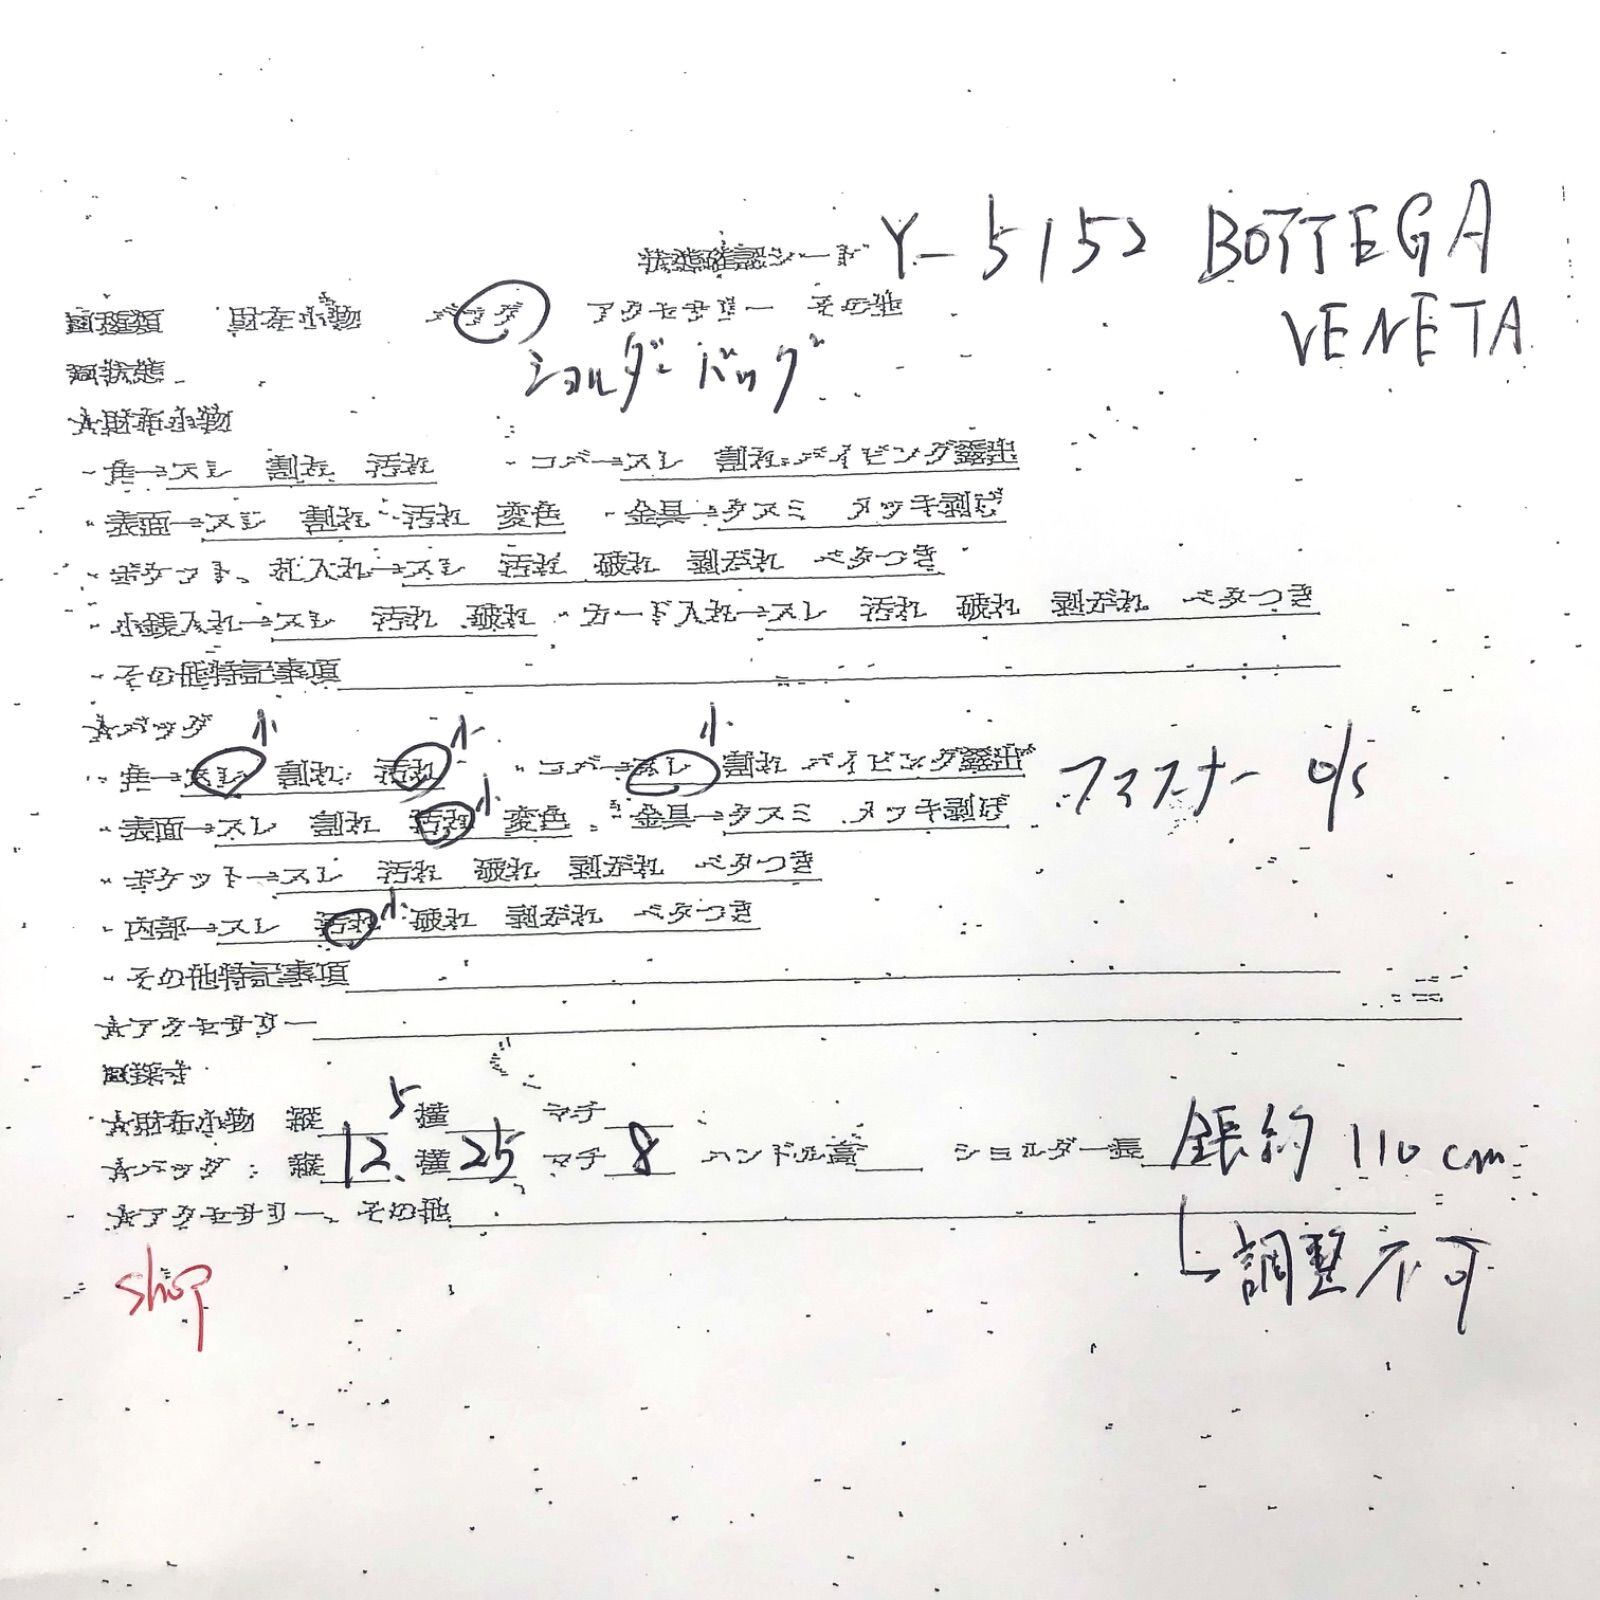 状態確認シート Y-5152 BOTTEGA VENETA
□種類 財布小物 バッグ アクセサリー その他
ショルダーバッグ
□状態
☆財布小物
・角→スレ 割れ 汚れ ・コバ→スレ 割れ パイピング露出
・表面→スレ 割れ 汚れ 変色 ・金具→クスミ メッキ剥げ
・ポケット、札入れ→スレ 汚れ 破れ 剥がれ ベタつき
・小銭入れ→スレ 汚れ 破れ ・カード入れ→スレ 汚れ 破れ 剥がれ ベタつき
・その他特記事項
☆バッグ 小 小 小
・角→スレ 割れ 汚れ ・コバ→スレ 割れ パイピング露出 ファスナー o/s
・表面→スレ 割れ 汚れ 小 変色 ・金具→クスミ メッキ剥げ
・ポケット→スレ 汚れ 破れ 剥がれ ベタつき
・内部→スレ 汚れ 小 破れ 剥がれ ベタつき
・その他特記事項
☆アクセサリー
□採寸
☆財布小物 縦 横 マチ
☆バッグ:縦12.5 横25 マチ8 ハンドル高 ショルダー長 全長約110cm
☆アクセサリー、その他
└→調整不可
shop